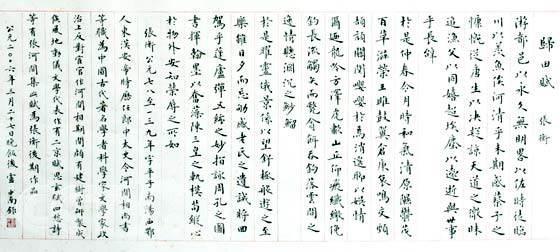 歸田賦 張衡
游都邑以永久無明略以佐時徒臨
川以羨魚俟河清乎未期感蔡子之
慷慨從唐生以決疑諒天道之微昧
追漁父以同嬉超埃塵以遐逝與世事
乎長辭
於是仲春令月時和氣清原隰鬱茂
百草滋榮王雎鼓翼倉庚哀鳴交頸
頡頏關關嚶嚶於焉逍遙聊以娛情
爾迺龍吟方澤虎嘯山丘仰飛纖繳俯
釣長流觸矢而斃貪餌吞鈎落雲間之
逸禽懸淵沉之魦鰡
於是曜靈俄景係以望舒極般遊之至
樂雖日夕而忘劬感老氏之遺誡將回
駕乎蓬廬彈五絃之妙指詠周孔之圖
書揮翰墨以奮藻陳三皇之軌模苟縱心
於物外安知榮辱之所如
張衡公元七八至一三九年字平子南陽西鄂
人東漢安帝時歷任郎中太史令河間相尚書
等職為中國古代著名學者科學家文學家政
治上反對宦官任河間相期間頗有建樹研製成
候風地動儀文學代表作有二京賦思玄賦四愁詩
等有張河間集此賦為張衡後期作品
公元二〇〇六年三月二十七日晚飯後 盧中南錄